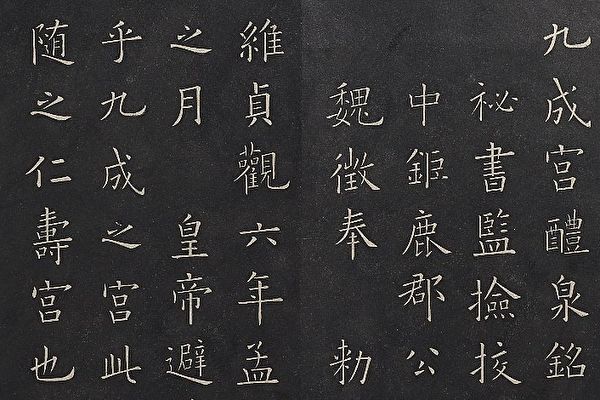 九成宮醴泉銘
祕書監撿挍
中鉅鹿郡公
魏徵奉 勑
維貞觀六年孟
之月 皇帝避
乎九成之宮此
随之仁壽宮也